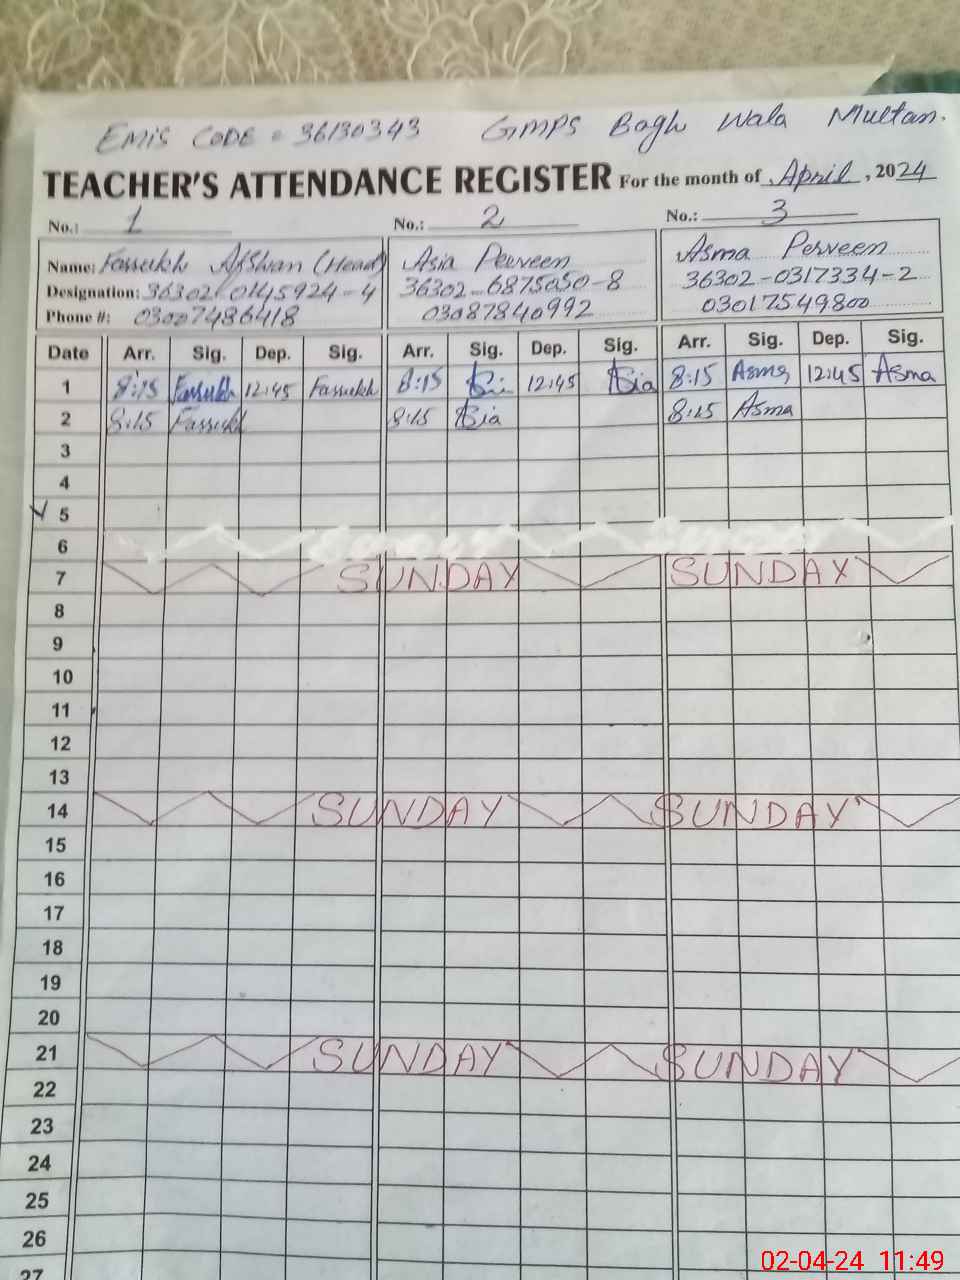 EMIS CODE = 36130343 GMPS Bagh Wala Multan.
TEACHER'S ATTENDANCE REGISTER For the month of April, 2024
No.: 1 No.: 2 No.: 3
Name: Farrukh Afshan (Head) Asia Perveen Asma Perveen
Designation: 36302-0145924-4 36302-6875050-8 36302-0317334-2
Phone #: 03007486418 03087840992 03017549800
Date Arr. Sig. Dep. Sig. Arr. Sig. Dep. Sig. Arr. Sig. Dep. Sig.
1 8:15 Farrukh 12:45 Farrukh 8:15 12:45 Asia 8:15 Asma 12:45 Asma
2 8:15 Farrukh 8:15 Asia 8:15 Asma
3
4
5
6
7 SUNDAY SUNDAY
8
9
10
11
12
13
14 SUNDAY SUNDAY
15
16
17
18
19
20
21 SUNDAY SUNDAY
22
23
24
25
26
27
02-04-24 11:49